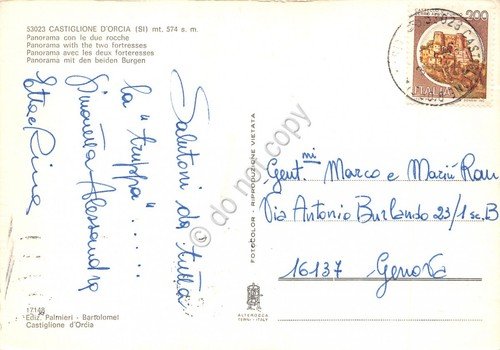 53023 CASTIGLIONE D'ORCIA (SI) mt. 574 s. m.
Panorama con le due rocche
Panorama with the two fortresses
Panorama avec les deux forteresses
Panorama mit den beiden Burgen
200
ITALIA
53023 CAST
Salutoni da tutta
la "truppa" .....
Simonetta Alessandro
Etta e Rina
Gent.mi Marco e Mariù Rau
Via Antonio Burlando 23/1 sc. B
16137 Genova
FOTOCOLOR - RIPRODUZIONE VIETATA
© do not copy
17148
Ediz. Palmieri - Bartolomei
Castiglione d'Orcia
ALTEROCCA
TERNI - ITALY